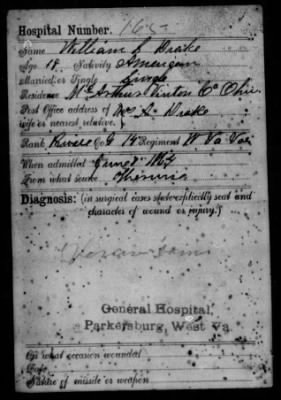 Hospital Number. 165
Name William L Drake
Age 18 Nativity American
Married or Single Single
Residence McArthur Vinton Co Ohio
Post Office address of A Drake
wife or nearest relative.
Rank Co G 14 Regiment W Va
When admitted June 1864
From what source
Diagnosis: (in surgical cases state explicitly seat and
character of wound or injury.)
General Hospital,
Parkersburg, West Va.
On what occasion wounded
Date
Nature of missile or weapon